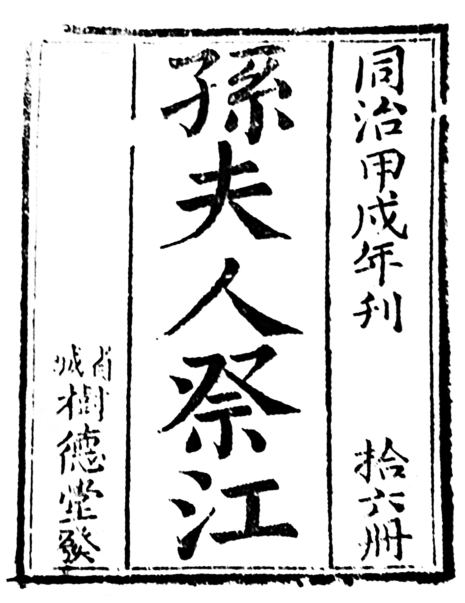 同治甲戌年刋 拾六冊
孫夫人祭江
省城樹德堂發